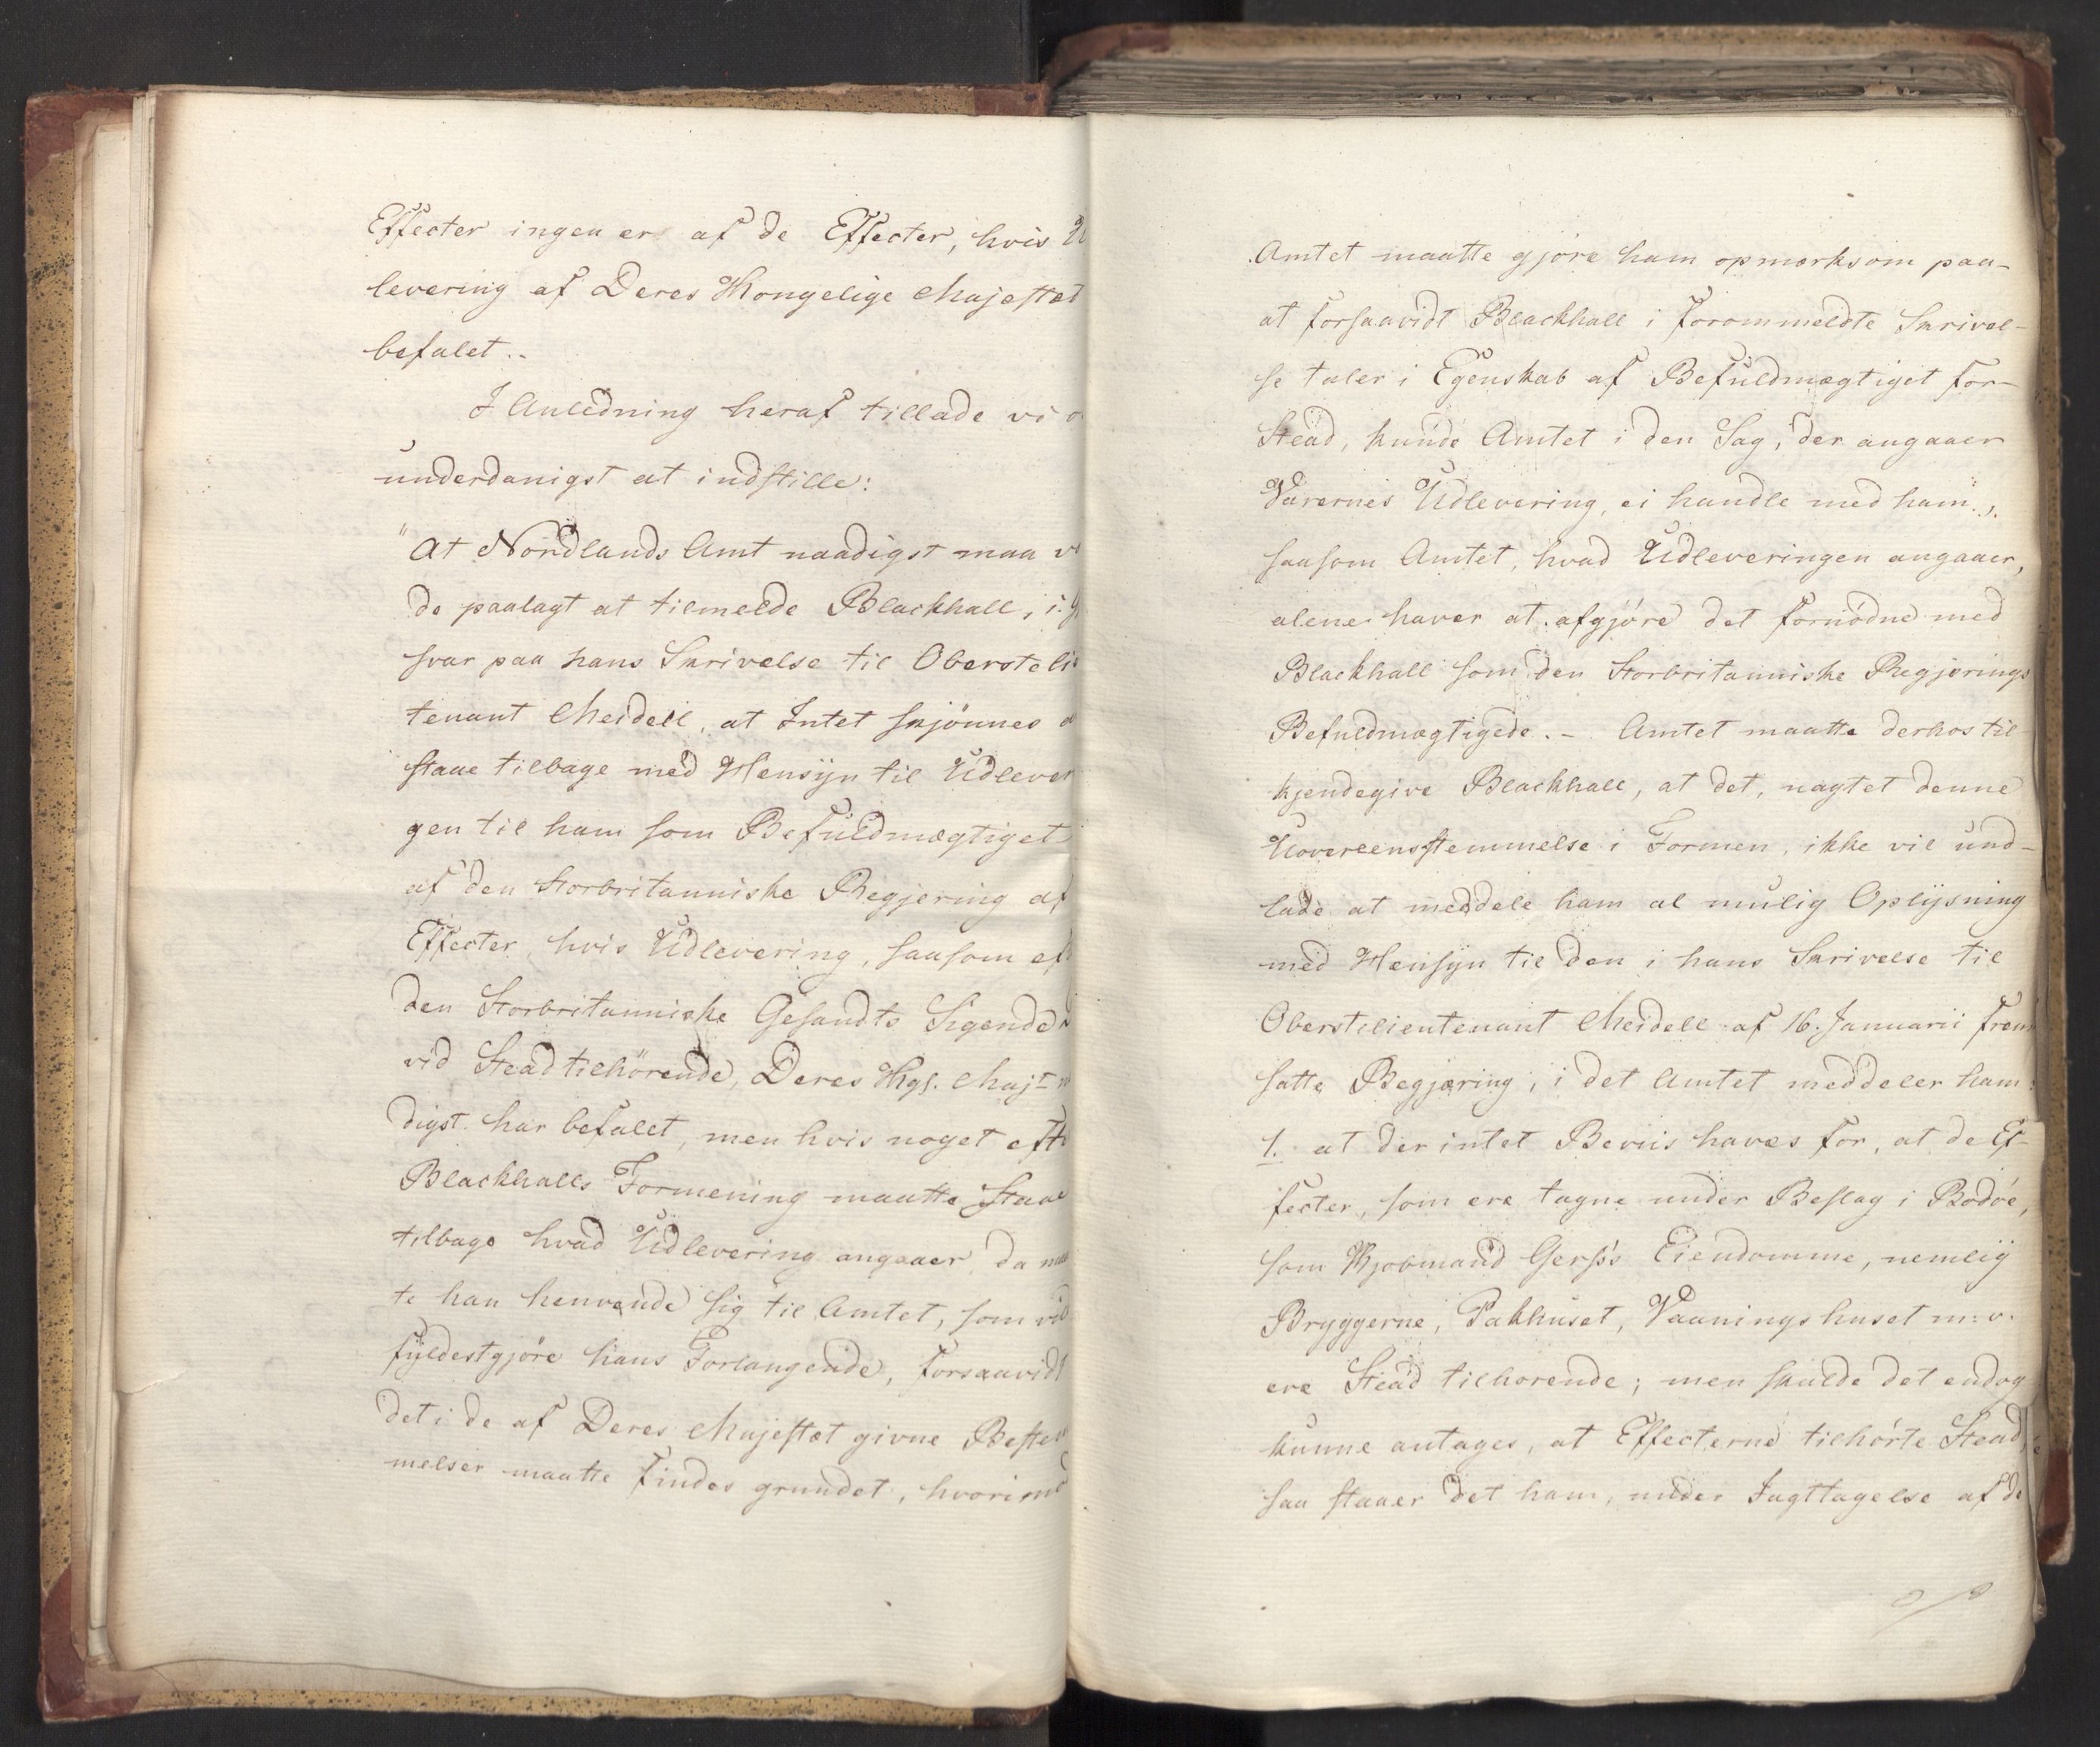 Effecter ingen er af de Effecter, hvis U
levering af Deres Kongelige Majestæt
befalet..
I Anledning heraf tillade vi o
underdanigst at indstille:
"At Nordlands Amt naadigst maa vo
de paalagt at tilmelde Blackhall, i G
svar paa hans Skrivelse til Oberstelie
tenant Meidell, at Intet skjönnes a
staae tilbage med Hensyn til Udlever
gen til ham som Befuldmægtiget
af den Storbritanniske Regjering af
Effecter, hvis Udlevering, saasom eft
den Storbritanniske Gesandts Sigende
vid Stead tilhörende, Deres Kgl. Majt n
digst har befalet, men hvis noget efte
Blackhalls Formening maatte staae
tilbage hvad Udlevering angaaer da maa
te han henvende sig til Amtet, som vil
fyldestgjöre hans Forlangende, forsaavidt
det i de af Deres Majestæt givne Bestem
melser maatte findes grundet, hvorimod
Amtet maatte gjöre ham opmærksom paa-
at forsaavidt Blackhall i forommeldte Skrivel-
se taler i Egenskab af Befuldmægtiget for-
Stead, kunde Amtet i den Sag, der angaaer
Varernes Udlevering, ei handle med ham,
saasom Amtet, hvad Udleveringen angaaer,
alene haver at afgjöre det fornödne med
Blackhall som den Storbritanniske Regjerings
Befuldmægtigede. - Amtet maatte derhos til
kjendegive Blackhall, at det, uagtet denne
Uovereensstemmelse i Formen, ikke vil und-
lade at meddele ham al mulig Oplysning
med Hensyn til den i hans Skrivelse til
Oberstelieutenant Meidell af 16. Januarii frem
satte Begjæring, i det Amtet meddeler ham:
1. at der intet Beviis haves for, at de Ef-
fecter, som ere tagne under Beslag i Bodöe,
som Kjobmand Gerss's Eiendomme, nemlig
Bryggerne, Pakhuset, Vaaningshuset m: v.
ere Stead tilhorende; men skulde det endog
kunne antages, at Effecterne tilhörte Stead,
saa staaer det ham, under Iagttagelse af de